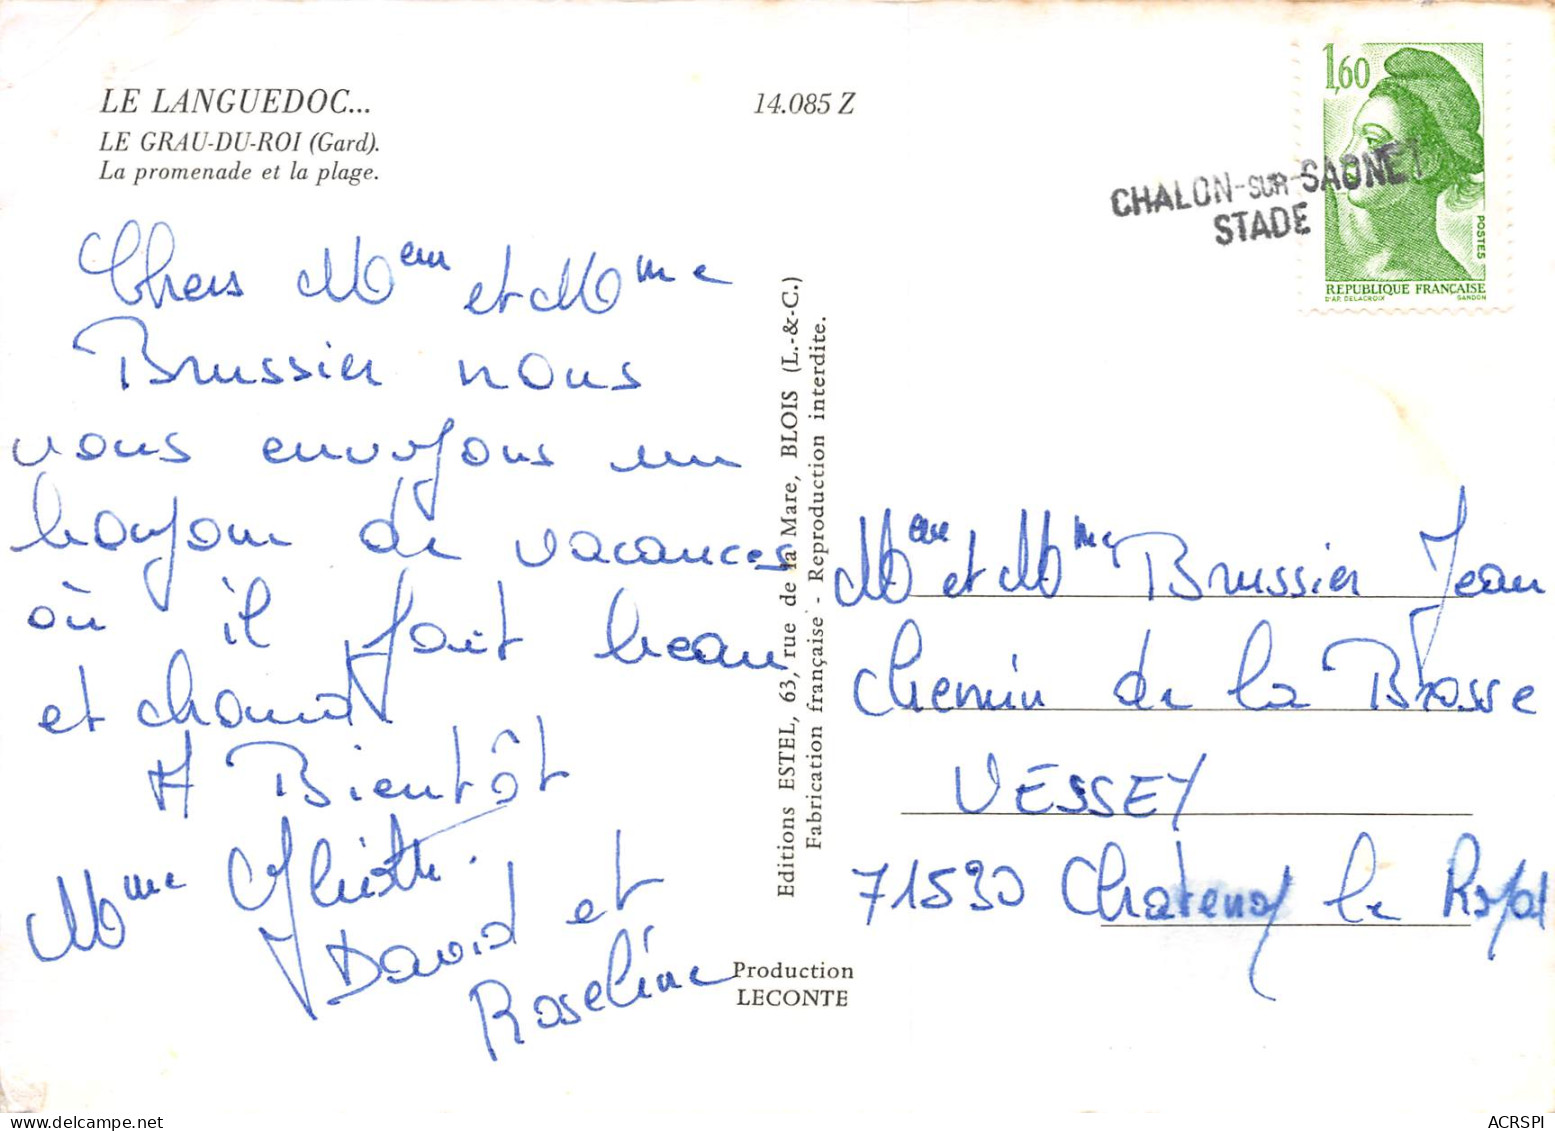 LE LANGUEDOC...
LE GRAU-DU-ROI (Gard).
La promenade et la plage.
14.085 Z
1,60
POSTES
REPUBLIQUE FRANÇAISE
D'AP. DELACROIX GANDON
CHALON-SUR-SAONE
STADE
Chers Meur et Mme
Brussier nous
vous envoyons un
bonjour de vacances
où il fait beau
et chaud
A Bientôt
Mme
David et
Roseline
Editions ESTEL, 63, rue de la Mare, BLOIS (L.-&-C.)
Fabrication française - Reproduction interdite.
Production
LECONTE
Meur et Mme Brussier Jean
Chemin de la Brosse
VESSEY
71530 Chatenoy le Royal
ACRSPI